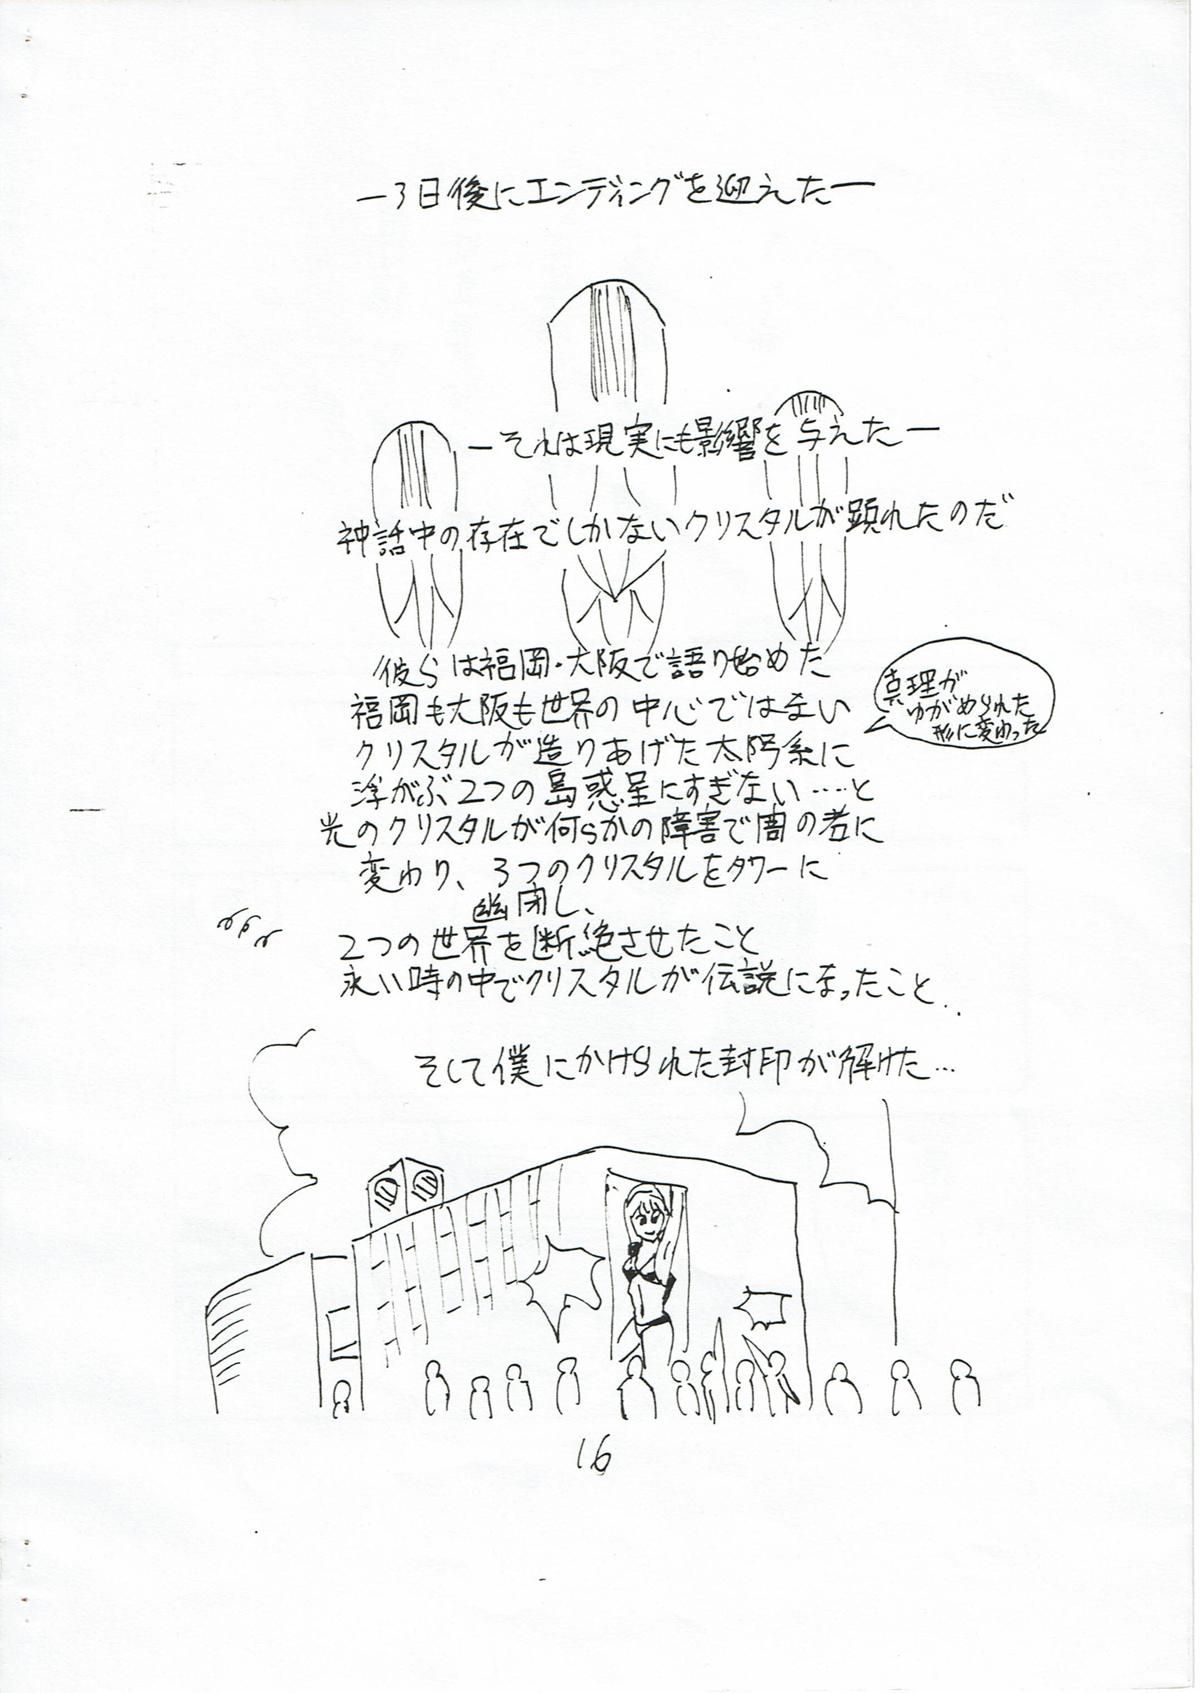 ー3日後にエンディングを迎えたー
ーそれは現実にも影響を与えたー
神話中の存在でしかないクリスタルが顕れたのだ
彼らは福岡・大阪で語り始めた
福岡も大阪も世界の中心ではない
クリスタルが造りあげた太陽系に
浮かぶ2つの島惑星にすぎない……と
真理が
ゆがめられた
形に変わった
光のクリスタルが何らかの障害で闇の者に
変わり、3つのクリスタルをタワーに
幽閉し、
2つの世界を断絶させたこと
永い時の中でクリスタルが伝説になったこと…
そして僕にかけられた封印が解けた…
16